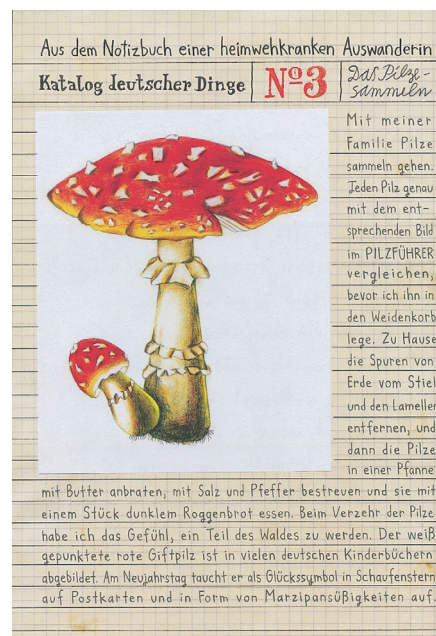 Aus dem Notizbuch einer heimwehkranken Auswanderin
Katalog deutscher Dinge
Nº3
Das Pilze-
sammeln
Mit meiner
Familie Pilze
sammeln gehen.
Jeden Pilz genau
mit dem ent-
sprechenden Bild
im PILZFÜHRER
vergleichen,
bevor ich ihn in
den Weidenkorb
lege. Zu Hause
die Spuren von
Erde vom Stiel
und den Lamellen
entfernen, und
dann die Pilze
in einer Pfanne
mit Butter anbraten, mit Salz und Pfeffer bestreuen und sie mit
einem Stück dunklem Roggenbrot essen. Beim Verzehr der Pilze
habe ich das Gefühl, ein Teil des Waldes zu werden. Der weiß
gepunktete rote Giftpilz ist in vielen deutschen Kinderbüchern
abgebildet. Am Neujahrstag taucht er als Glückssymbol in Schaufenstern
auf Postkarten und in Form von Marzipansüßigkeiten auf.